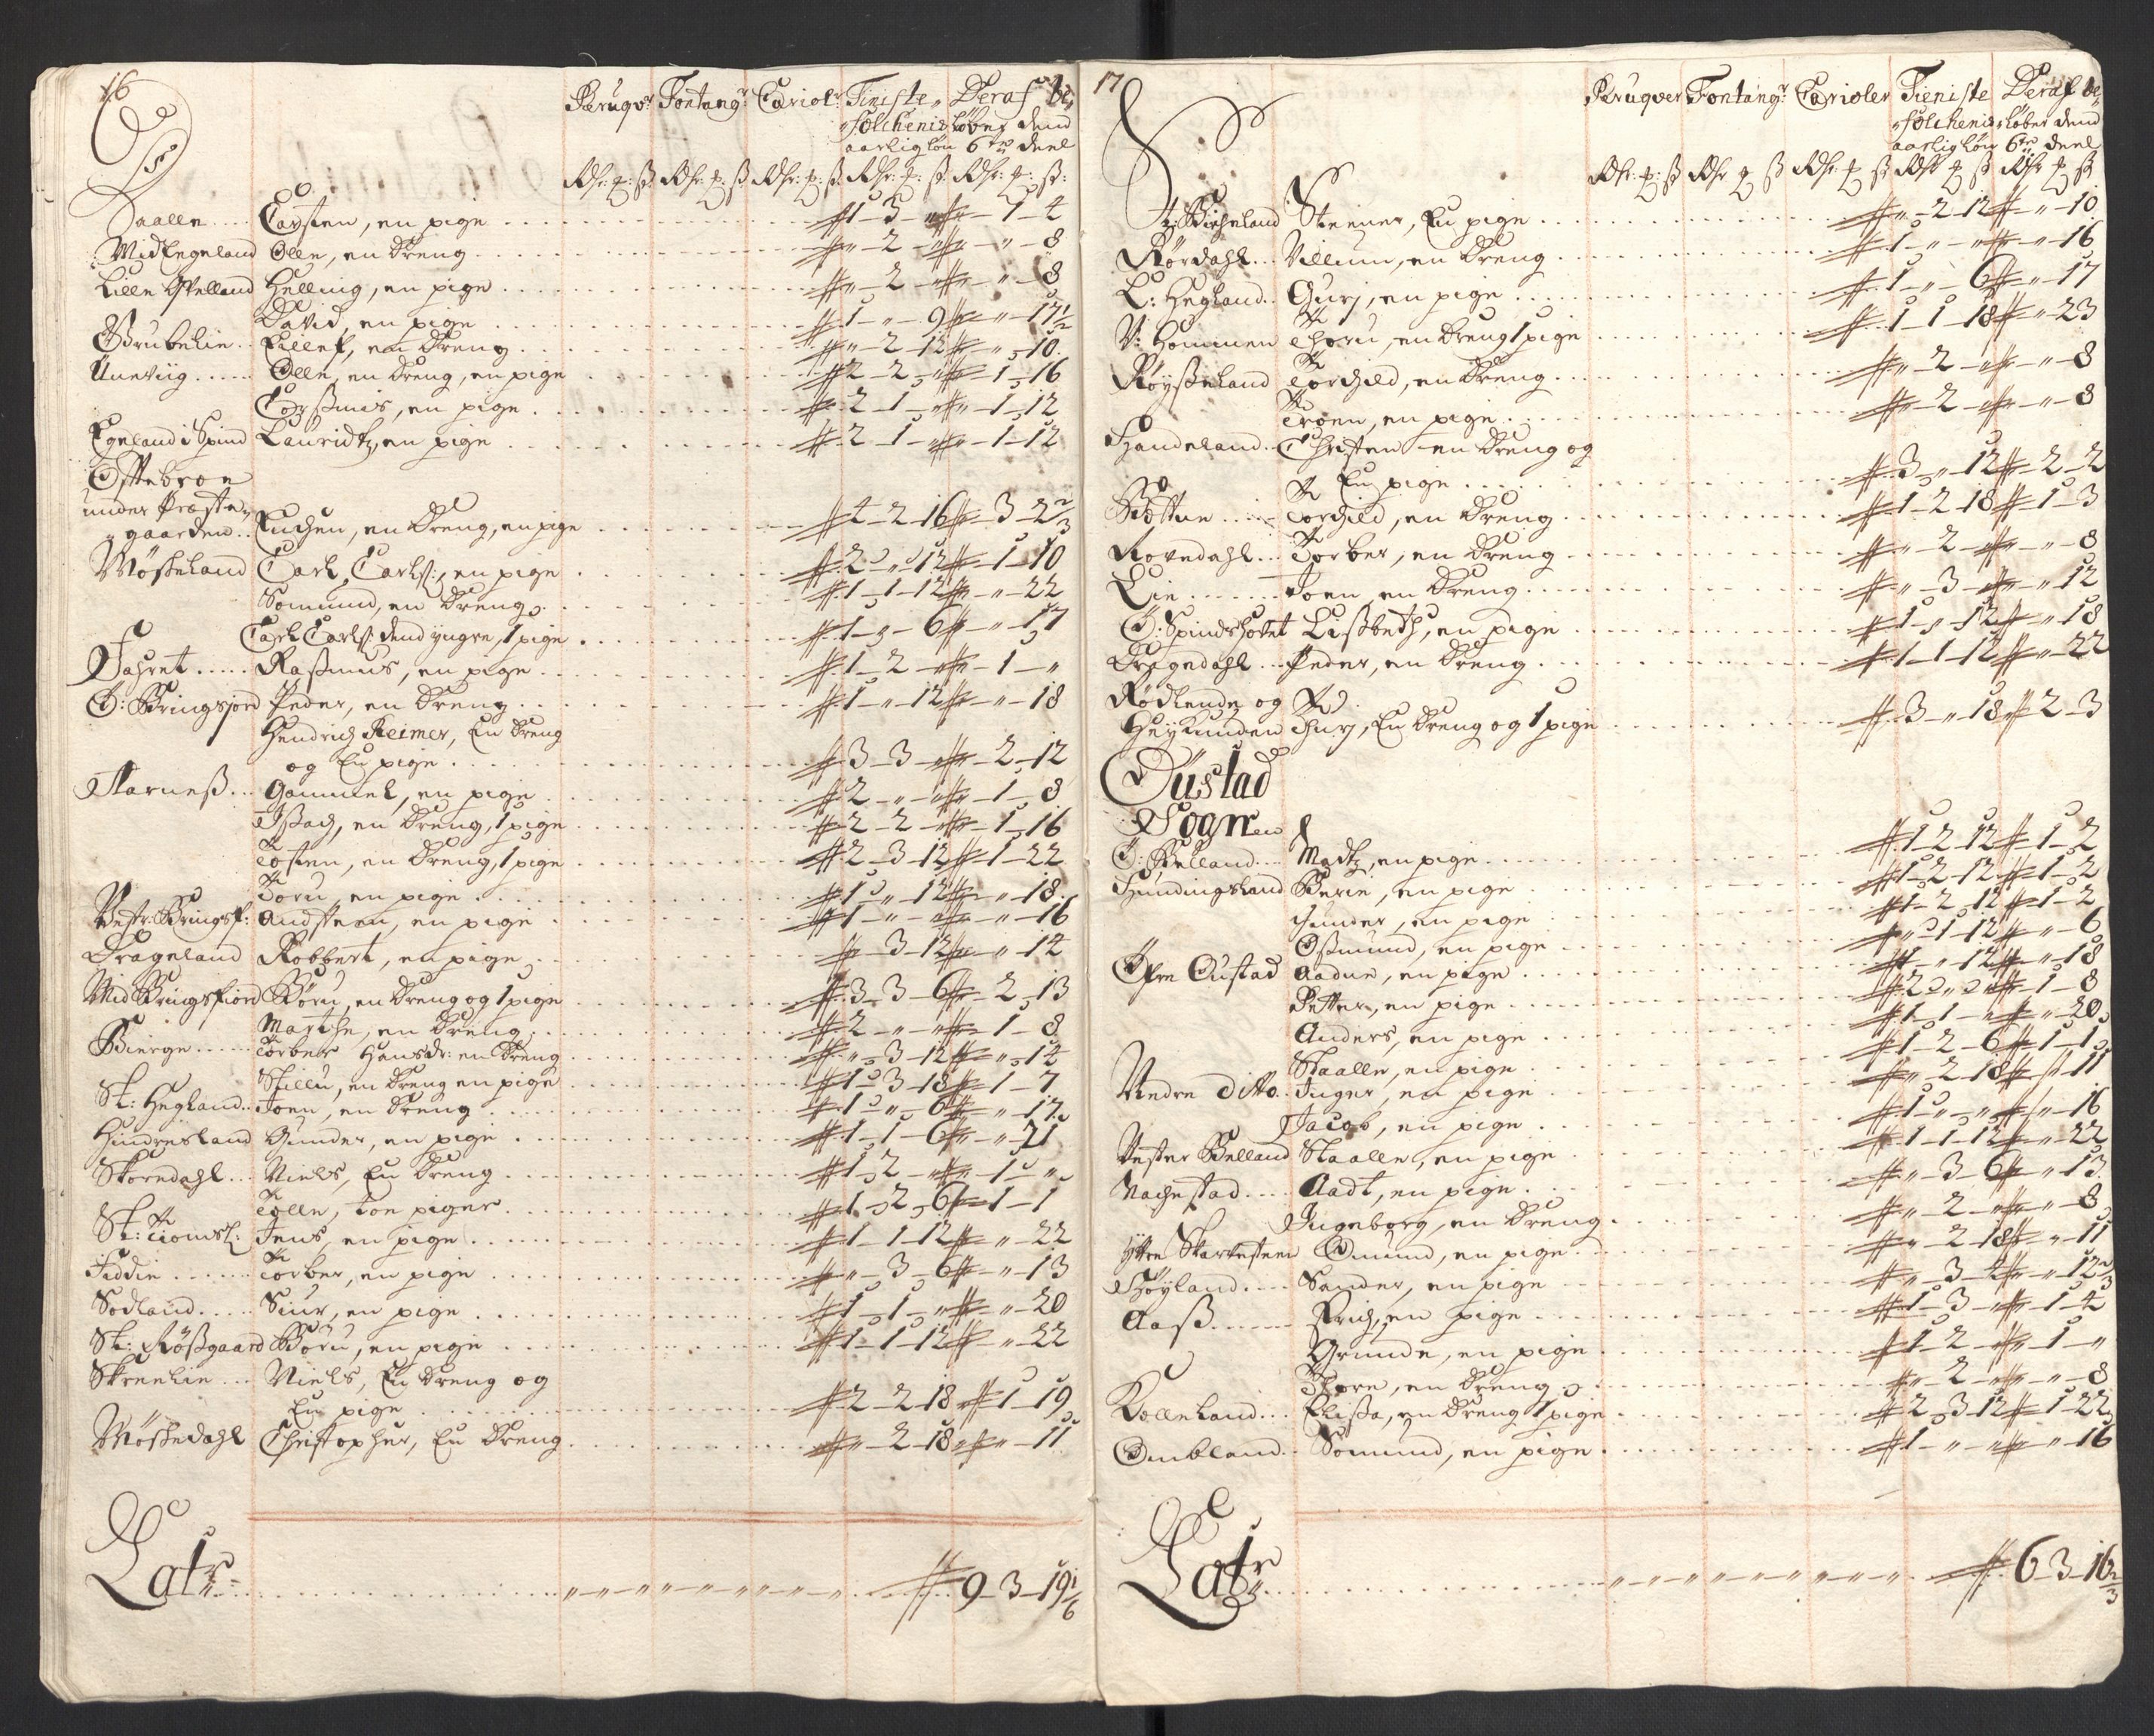 16
Peruqver Fontang: Cariol: Tieniste Deraf be„
folchenis løber dend
aarlig løn 6te deel
Rdr: ƺ: ß Rdr: ƺ: ß Rdr: ƺ: ß Rdr: ƺ: ß Rdr: ƺ: ß:
Haalle Carsten, en pige 1 - 3 - „ „ - 1 - 4
Mid Eegeland Olle, en dreng „ - 2 - „ „ - „ - 8
Lille Qvelland Helling, en pige „ - 2 - „ „ - „ - 8
David, en pige 1 - „ - 9 „ - „ - 17 1/2
Grubelie Eillef, en dreng „ - 2 - 12 „ - „ - 10
Ulleviig Olle, en dreng, en pige 2 - 2 - „ „ - 1 - 16
Corßmis, en pige 2 - 1 - „ „ - 1 - 12
Egeland i Spind Lauridtz, en pige 2 - 1 - „ „ - 1 - 12
Østebroe
under Præste„
gaarden Enchen, en dreng, en pige 4 - 2 - 16 „ - 3 - 2 2/3
Møskeland Carl Carls:, en pige 2 - „ - 12 „ - 1 - 10
Somund, en dreng 1 - 1 - 12 „ - „ - 22
Carl Carls: dend yngre, 1 pige 1 - „ - 6 „ - „ - 17
Jahret Raßmus, en pige 1 - 2 - „ „ - 1 - „
Ø: Bringsjord Peder, en dreng 1 - „ - 12 „ - „ - 18
Hendrich Reimer, En dreng
og En pige 3 - 3 - „ „ - 2 - 12
Farneß Gammel, en pige 2 - „ - „ „ - 1 - 8
Ißach, en dreng, 1 pige 2 - 2 - „ „ - 1 - 16
Tosten, en dreng, 1 pige 2 - 3 - 12 „ - 1 - 22
Toru, en pige 1 - „ - 12 „ - „ - 18
Vestr: Bringsf: Andsteen, en pige 1 - „ - „ „ - „ - 16
Drageland Robbert, en pige „ - 3 - 12 „ - „ - 14
Mid Bringsfiord Børu, en dreng og 1 pige 3 - 3 - 6 „ - 2 - 13
Marthe, en dreng 2 - „ - „ „ - 1 - 8
Bierge Torber Hansdr: en dreng „ - 3 - 12 „ - „ - 14
Stillu, en dreng en pige 1 - 3 - 18 „ - 1 - 7
St: Hegland Joen, en dreng 1 - „ - 6 „ - „ - 17
Hindresland Gunder, en pige 1 - 1 - 6 „ - „ - 21
Skoredahl Niels, En dreng 1 - 2 - „ „ - 1 - „
Tolle, toe piger 1 - 2 - 6 „ - 1 - 1
St: Tiomsl: Jens, en pige 1 - 1 - 12 „ - „ - 22
Fiddie Torber, en pige „ - 3 - 6 „ - „ - 13
Sodland Siur, en pige 1 - 1 - „ „ - „ - 20
St: Røßgaard Børu, en pige 1 - 1 - 12 „ - „ - 22
Skreelie Niels, En dreng og
En pige 2 - 2 - 18 „ - 1 - 19
Møskedahl Christopher, En dreng „ - 2 - 18 „ - „ - 11
Latr 9 - 3 - 19 1/6
17
Peruqver Fontang: Carioler Tieniste Deraf be„
folchenis løber dend
aarlig løn 6te deel
Rdr: ƺ: ß Rdr ƺ ß Rdr: ƺ ß Rdr ƺ ß Rdr ƺ ß
Birkeland Steener, En pige „ - 2 - 12 „ - „ - 10
Rørdahl Villum, en dreng 1 - „ - „ „ - „ - 16
L: Hegland Gurj, en pige 1 - „ - 6 „ - „ - 17
V: Hommen Thoru, en dreng 1 pige 1 - 1 - 18 „ - „ - 23
Røyßeland Torchild, en dreng „ - 2 - „ „ - „ - 8
Troen, en pige „ - 2 - „ „ - „ - 8
Handeland Christen en dreng og
En pige 3 - „ - 12 „ - 2 - 2
Bøttue Torchild, en dreng 1 - 2 - 18 „ - 1 - 3
Rovedahl Torber, en dreng „ - 2 - „ „ - „ - 8
Lie Joen, en dreng „ - 3 - „ „ - „ - 12
Ø: Spindshovet Lißbeth, en pige 1 - „ - 12 „ - „ - 18
Dragedahl Peder, en dreng 1 - 1 - 12 „ - „ - 22
Rødlende og
Heykunden Thurj, En dreng og 1 pige 3 - „ - 18 „ - 2 - 3
Oustad
Sognen
Ø: Belland Madtz, en pige 1 - 2 - 12 „ - 1 - 2
Hundingsland Berie, en pige 1 - 2 - 12 „ - 1 - 2
Gunder, en pige 1 - 2 - 12 „ - 1 - 2
Oßmund, en pige „ - 1 - 12 „ - „ - 6
Øfre Oustad Aadne, en pige 1 - „ - 12 „ - „ - 18
Petter, en pige 2 - „ - „ „ - 1 - 8
Anders, en pige 1 - 1 - „ „ - „ - 20
Staalle, en pige 1 - 2 - 6 „ - 1 - 1
Nedre Ditto Inger, en pige „ - 2 - 18 „ - „ - 11
Jacob, en pige 1 - „ - „ „ - „ - 16
Vester Belland Staalle, en pige 1 - 1 - 12 „ - „ - 22
Nachestad Aadt, en pige „ - 3 - 6 „ - „ - 13
Ingeborg, en dreng „ - 2 - „ „ - „ - 8
Yttre Skarkesteen Omund, en pige „ - 2 - 18 „ - „ - 11
Høyland Sander, en pige „ - 3 - 4 „ - „ - 12 2/3
Aaß Erich, en pige 1 - 3 - „ „ - 1 - 4
Grunde, en pige 1 - 2 - „ „ - 1 - „
Thore, en dreng „ - 2 - „ „ - „ - 8
Kolleland Elißa, en dreng 1 pige 2 - 3 - 12 „ - 1 - 22
Ombland Somund, en pige 1 - „ - „ „ - „ - 16
Latr 6 - 3 - 16 2/3